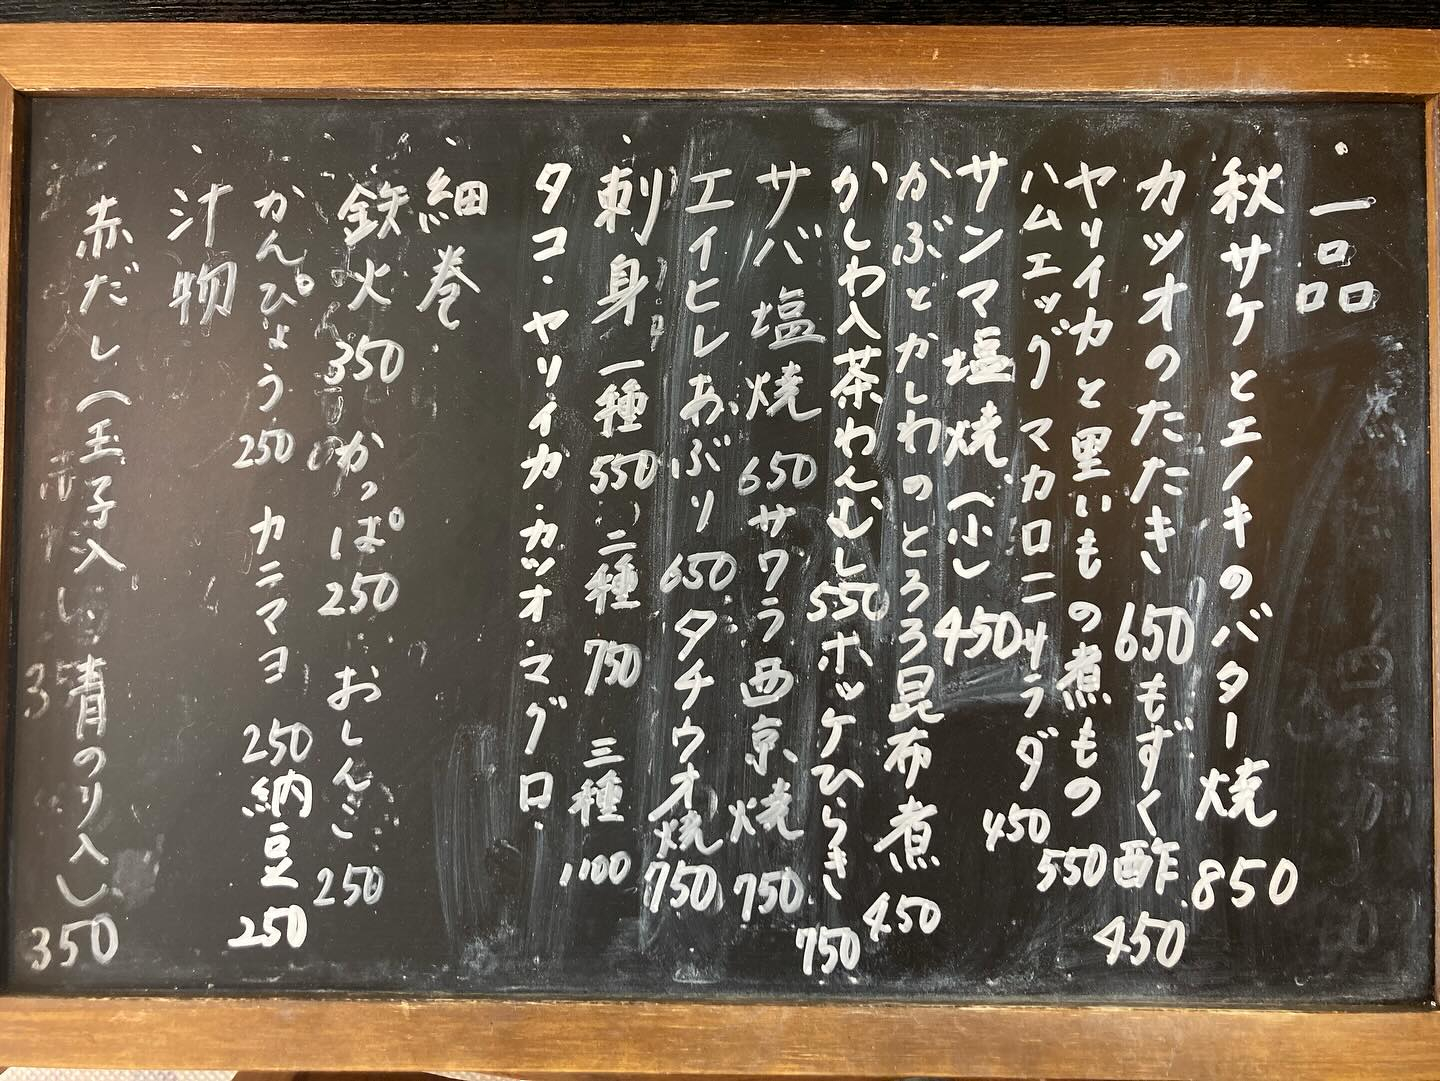 ・一品
秋サケとエノキのバター焼 850
カツオのたたき 650 もずく酢 450
ヤリイカと里いもの煮もの 550
ハムエッグマカロニサラダ 450
サンマ塩焼(小) 450
かぶとかしわのとろろ昆布煮 450
かしわ入茶わんむし 550 ホッケひらき 750
サバ塩焼 650 サワラ西京焼 750
エイヒレあぶり 650 タチウオ焼 750
・刺身 一種 550 二種 750 三種 1100
タコ・ヤリイカ・カツオ・マグロ・
・細巻
鉄火 350 かっぱ 250 おしんこ 250
かんぴょう 250 カニマヨ 250 納豆 250
・汁物
赤だし(玉子入り・青のり入り) 350